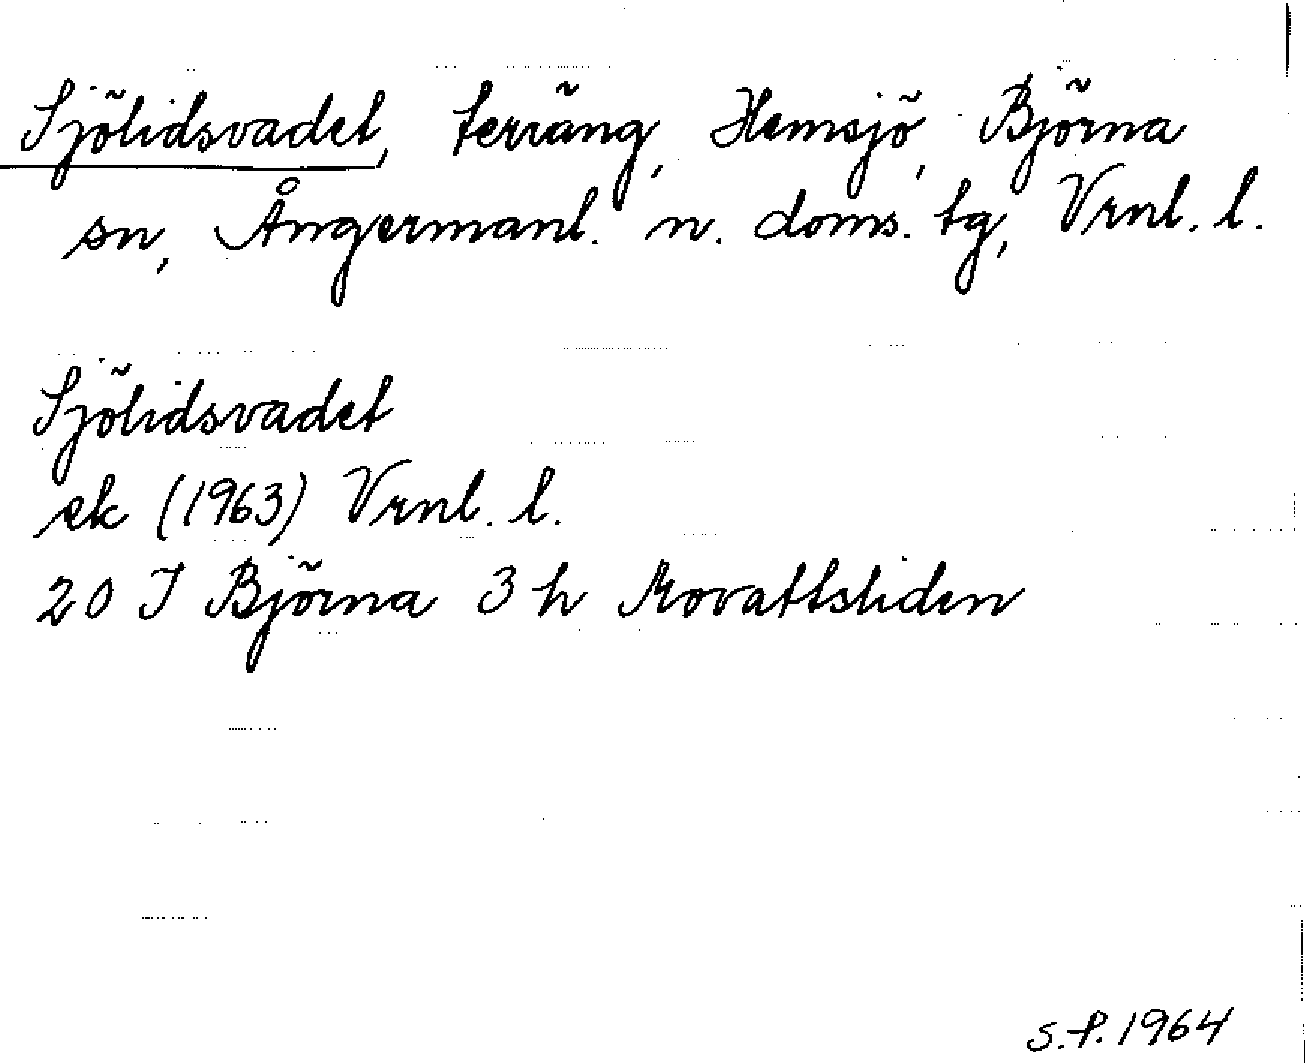 Sjölidsvadet, terräng, Hemsjö, Björna
sn, Ångermanl. n. doms. tg, Vrnl. l.
Sjölidsvadet
ek (1963) Vrnl. l.
20 I Björna 3 h Movattsliden
S.P. 1964